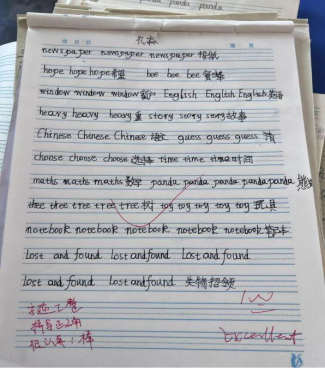 newspaper newspaper newspaper 报纸
hope hope hope 希望 bee bee bee 蜜蜂
window window window 窗户 English English English 英语
heavy heavy heavy 重 story story story 故事
Chinese Chinese Chinese 语文 guess guess guess 猜
choose choose choose 选择 time time time 时间
maths maths maths 数学 panda panda panda panda panda 熊
thee thee tree tree tree 树 toy toy toy toy toy 玩具
notebook notebook notebook notebook notebook 笔记本
Lost and found Lost and found Lost and found
Lost and found Lost and found 失物招领
Excellent